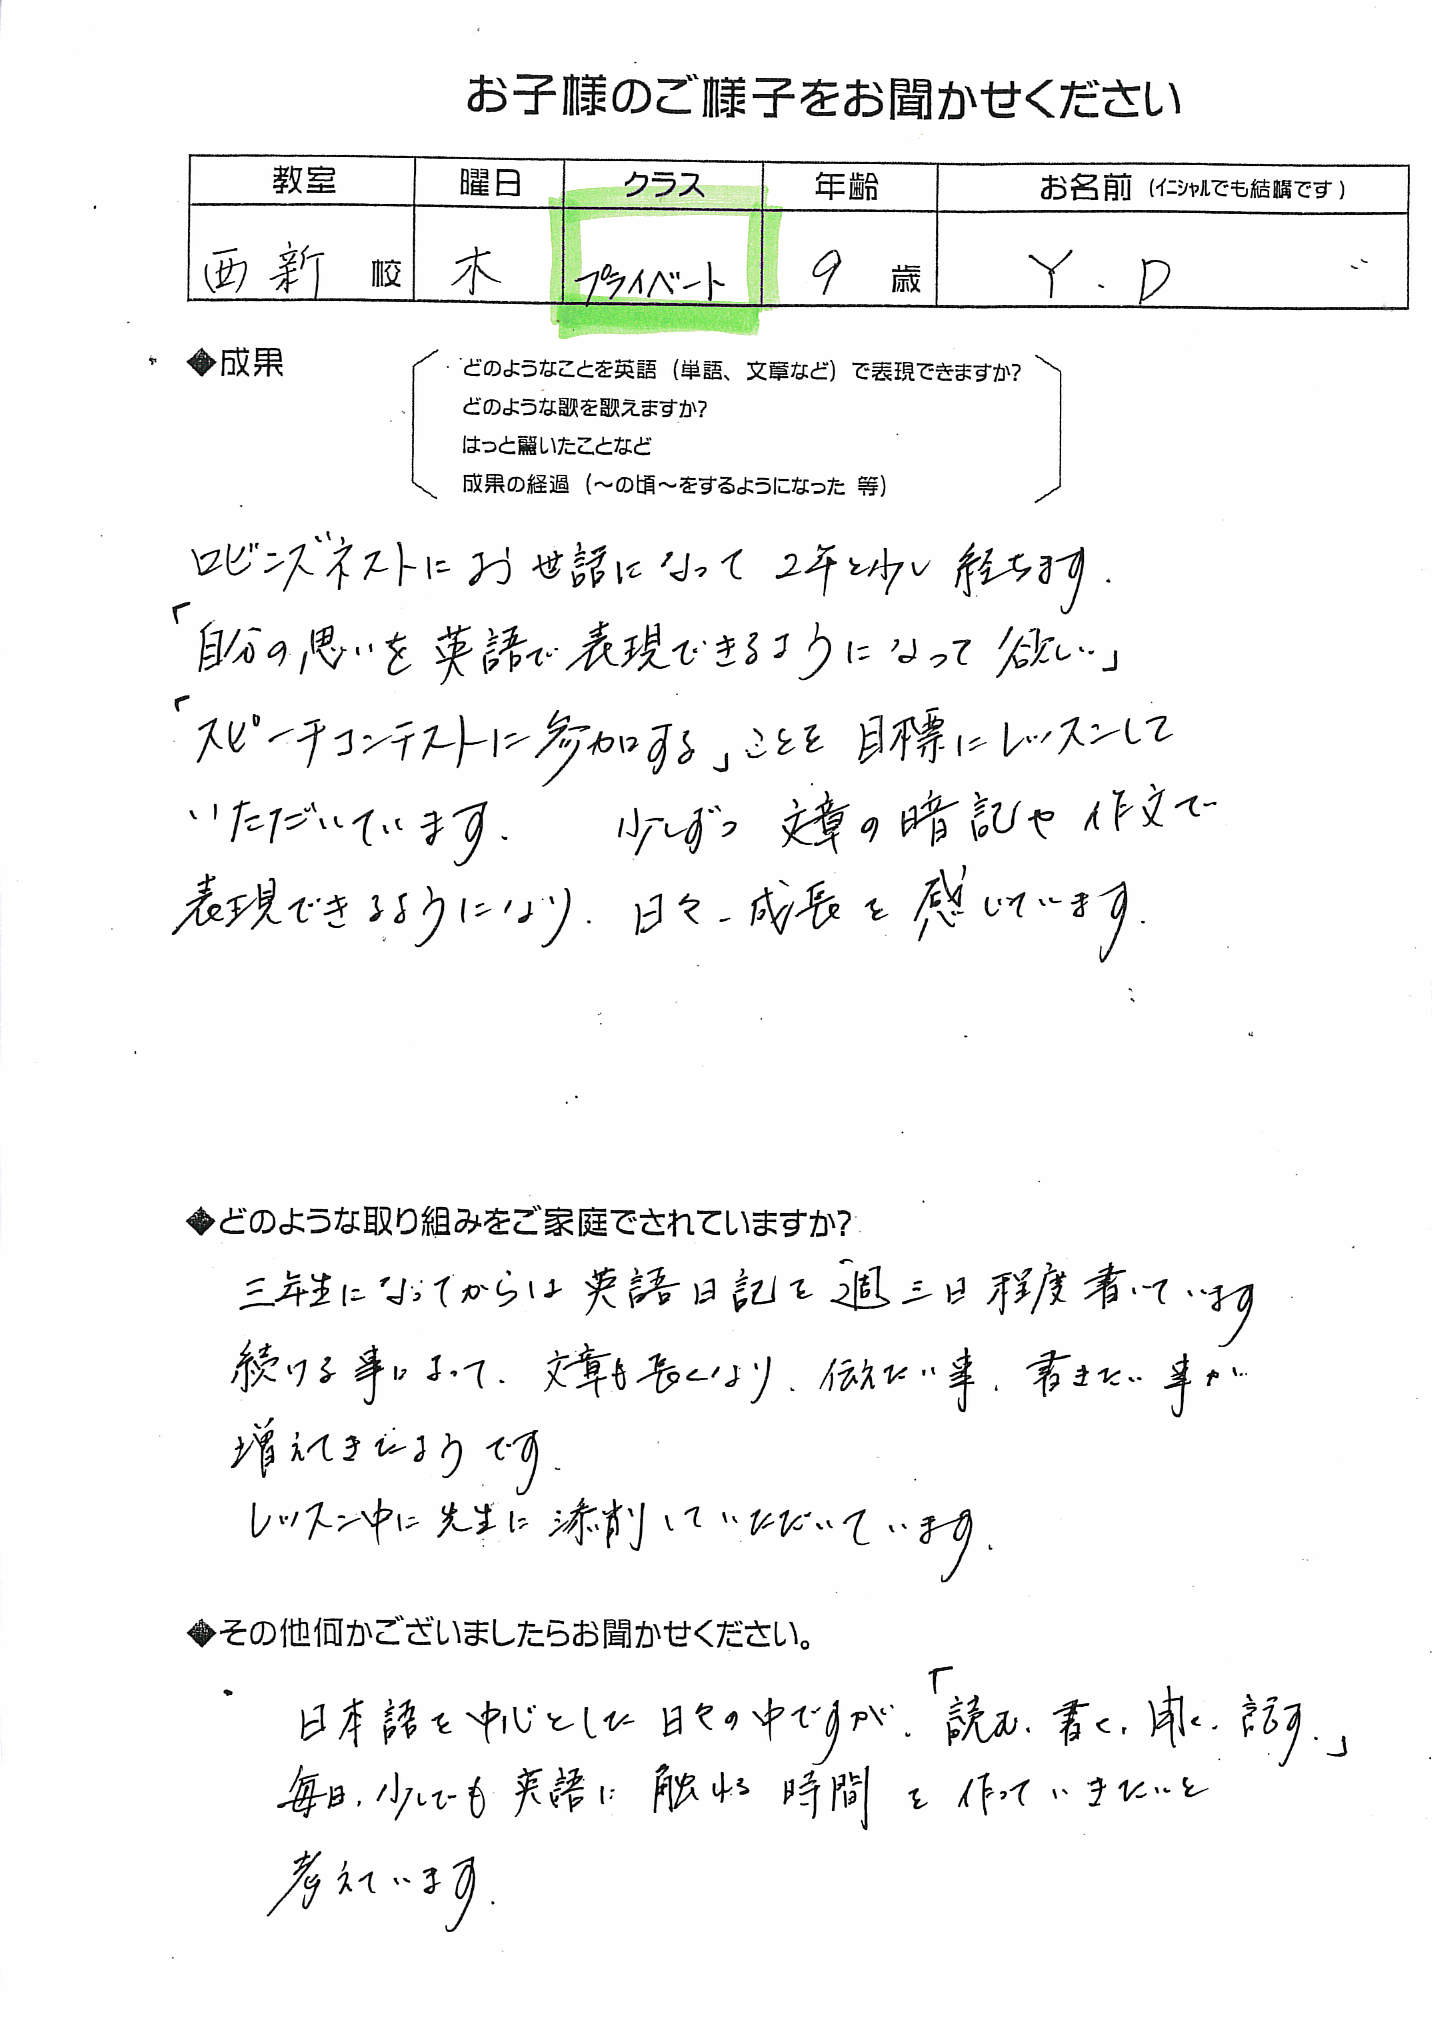 お子様のご様子をお聞かせください
教室 曜日 クラス 年齢 お名前（イニシャルでも結構です）
西新 校 木 プライベート 9 歳 Y.D
◆成果
どのようなことを英語（単語、文章など）で表現できますか?
どのような歌を歌えますか?
はっと驚いたことなど
成果の経過（～の頃～をするようになった 等）
ロビンズネストにお世話になって2年と少し経ちます.
「自分の思いを英語で表現できるようになって欲しい」
「スピーチコンテストに参加する」ことを目標にレッスンして
いただいています. 少しずつ文章の暗記や作文で
表現できるようになり、日々、成長を感じています.
◆どのような取り組みをご家庭でされていますか?
三年生になってからは英語日記を週三日程度書いています
続ける事によって、文章も長くなり、伝えたい事、書きたい事が
増えてきたようです.
レッスン中に先生に添削していただいています.
◆その他何かございましたらお聞かせください。
日本語を中心とした日々の中ですが、「読む、書く、聞く、話す.」
毎日、少しでも英語に触れる時間を作っていきたいと
考えています.